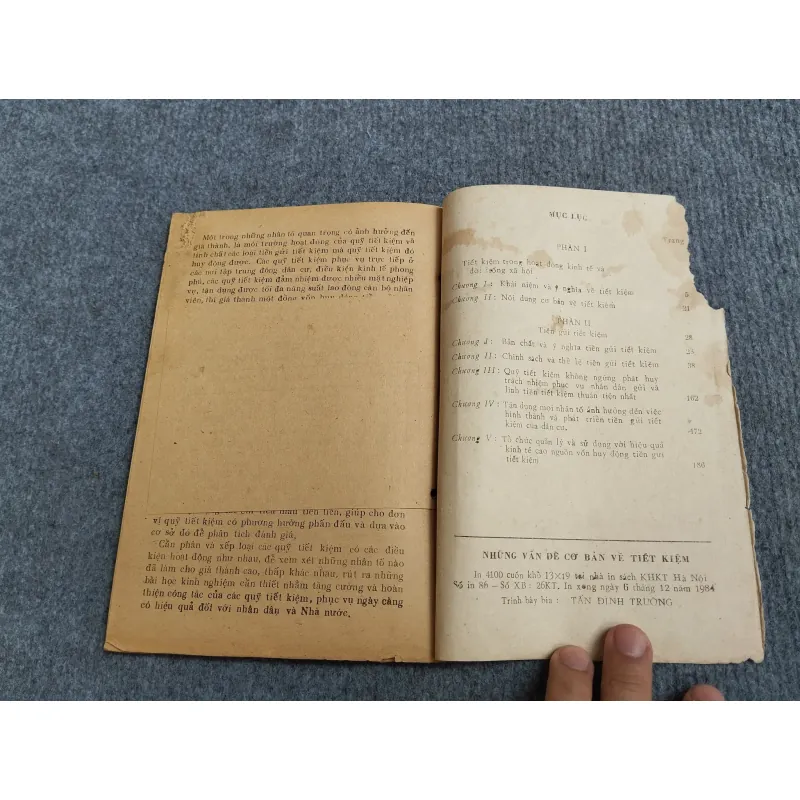 Một trong những nhân tố quan trọng có ảnh hưởng đến
giá thành, là môi trường hoạt động của quỹ tiết kiệm và
tính chất các loại tiền gửi tiết kiệm mà quỹ tiết kiệm đó
huy động được. Các quỹ tiết kiệm phục vụ trực tiếp ở
các nơi tập trung đông dân cư, điều kiện kinh tế phong
phú, các quỹ tiết kiệm đảm nhiệm được nhiều mặt nghiệp
vụ, tận dụng được tối đa năng suất lao động cán bộ nhân
viên, thì giá thành một đồng vốn huy động
tiên tiến, giúp cho đơn
vị quỹ tiết kiệm có phương hướng phấn đấu và dựa vào
cơ sở đó để phân tích đánh giá,
Cần phân và xếp loại các quỹ tiết kiệm có các điều
kiện hoạt động như nhau, để xem xét những nhân tố nào
đã làm cho giá thành cao, thấp khác nhau, rút ra những
bài học kinh nghiệm cần thiết nhằm tăng cường và hoàn
thiện công tác của các quỹ tiết kiệm, phục vụ ngày càng
có hiệu quả đối với nhân dân và Nhà nước.
MỤC LỤC
PHẦN I
Trang
Tiết kiệm trong hoạt động kinh tế và
đời sống xã hội
Chương I : Khái niệm và ý nghĩa về tiết kiệm 5
Chương II : Nội dung cơ bản về tiết kiệm 21
PHẦN II
Tiền gửi tiết kiệm 28
Chương I : Bản chất và ý nghĩa tiền gửi tiết kiệm 28
Chương II : Chính sách và thể lệ tiền gửi tiết kiệm 38
Chương III : Quỹ tiết kiệm không ngừng phát huy
trách nhiệm phục vụ nhân dân gửi và
lĩnh tiền tiết kiệm thuận tiện nhất 162
Chương IV : Tận dụng mọi nhân tố ảnh hưởng đến việc
hình thành và phát triển tiền gửi tiết
kiệm của dân cư. 172
Chương V : Tổ chức quản lý và sử dụng với hiệu quả
kinh tế cao nguồn vốn huy động tiền gửi
tiết kiệm 186
NHỮNG VẤN ĐỀ CƠ BẢN VỀ TIẾT KIỆM
In 4100 cuốn khổ 13×19 tại nhà in sách KHKT Hà Nội
Số in 86 – Số XB : 26KT. In xong ngày 6 tháng 12 năm 1984
Trình bày bìa : TẤN ĐÌNH TRƯỜNG